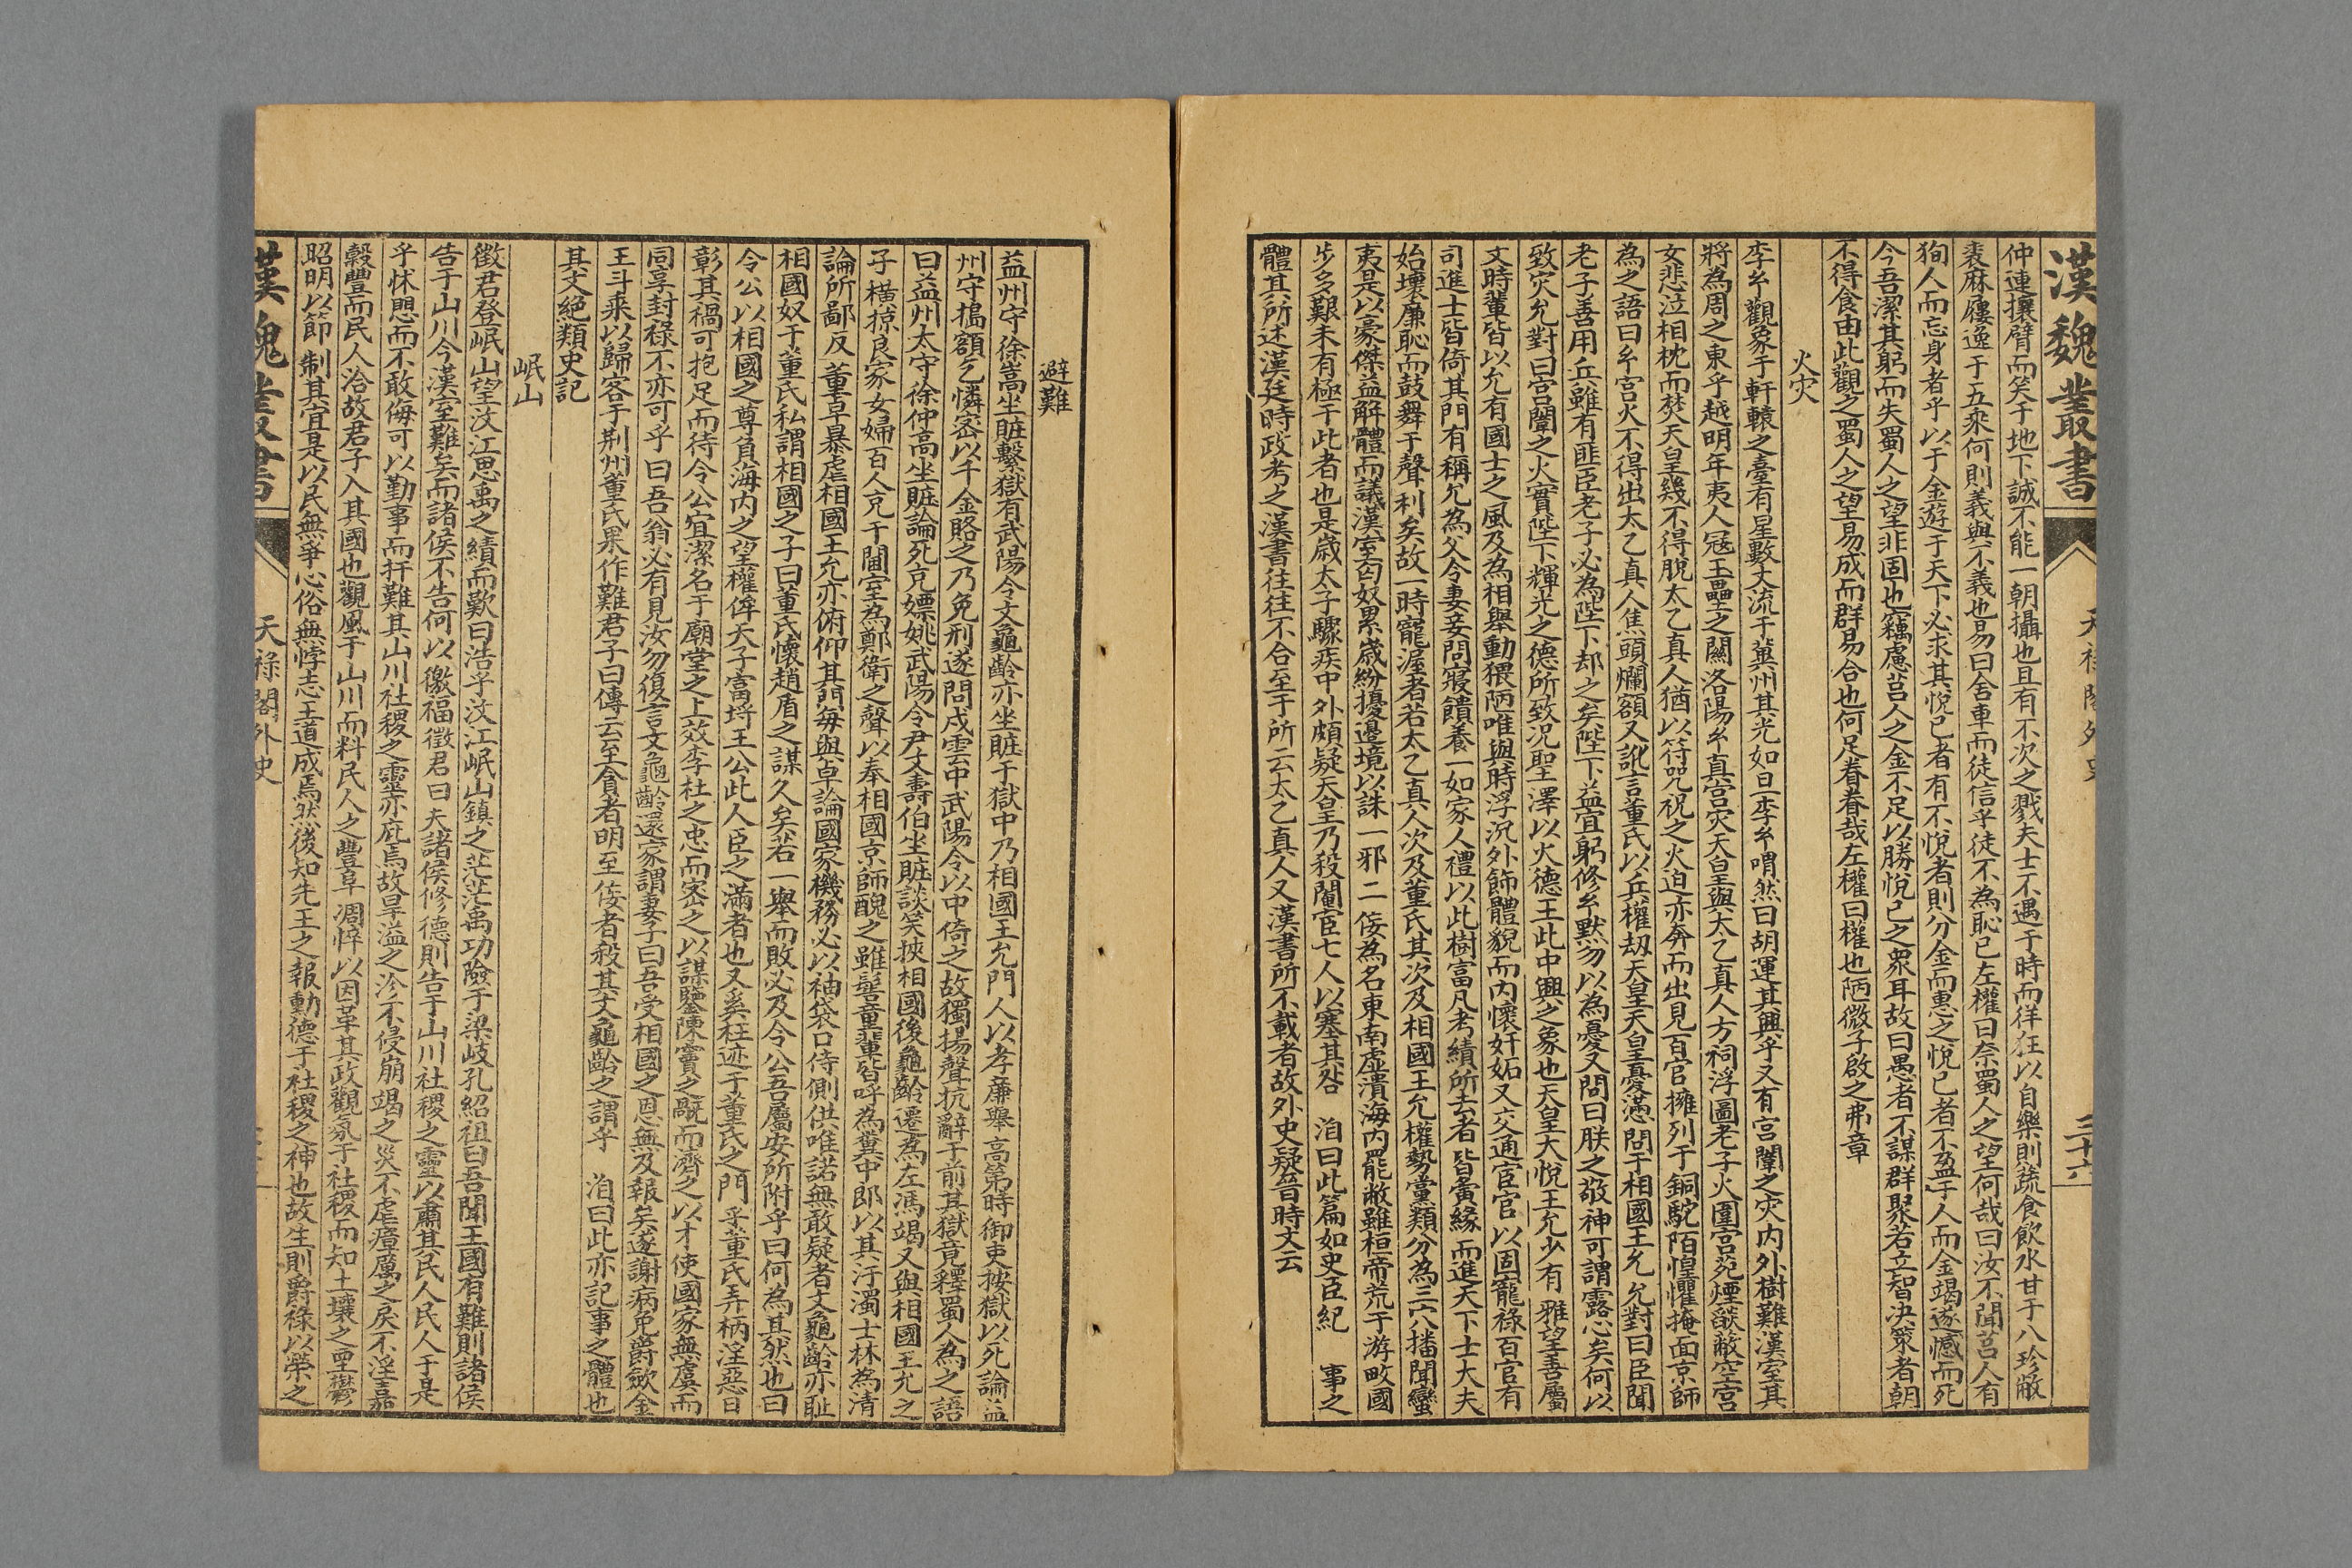 漢魏叢書
天祿閣外史
三十六
仲連攘臂而笑于地下誠不能一朝攝也且有不次之戮夫士不遇于時而徉狂以自樂則蔬食飲水甘于八珍敝
裘麻屨逸于五乘何則義與不義也易曰舍車而徒信乎徒不為恥已左權曰奈蜀人之望何哉曰汝不聞莒人有
狥人而忘身者乎以千金遊于天下必求其悅己者有不悅者則分金而惠之悅己者不盈于人而金竭遂憾而死
今吾潔其躬而失蜀人之望非固也竊慮莒人之金不足以勝悅己之眾耳故曰愚者不謀群聚若立智决策者朝
不得食由此觀之蜀人之望易成而群易合也何足眷眷哉左權曰權也陋微子啟之弗章
火灾
李㐅觀象于軒轅之臺有星數丈流于冀州其光如旦李㐅喟然曰胡運其興乎又有宮闈之灾内外樹難漢室其
將為周之東乎越明年夷人冦玉壘之關洛陽㐅真宮灾天皇與太乙真人方祠浮圖老子火圍宮苑煙燄蔽空宮
女悲泣相枕而焚天皇幾不得脫太乙真人猶以符咒祝之火迫亦奔而出見百官擁列于銅駝陌惶懼掩面京師
為之語曰㐅宮火不得出太乙真人焦頭爛額又訛言董氏以兵權刼天皇天皇憂懣問于相國王允允對曰臣聞
老子善用兵雖有匪臣老子必為陛下却之矣陛下益宜躬修㐅默勿以為憂又問曰朕之敬神可謂露心矣何以
致灾允對曰宮闈之火實陛下輝光之德所致况聖澤以火德王此中興之象也天皇大悅王允少有雅望善屬
文時輩皆以允有國士之風及為相舉動猥陋唯與時浮沉外飾體貌而内懷奸妬又交通宦官以固寵祿百官有
司進士皆倚其門有稱允為父令妻妾問寢饋養一如家人禮以此樹富凡考績所去者皆夤緣而進天下士大夫
始壞廉恥而鼓舞于聲利矣故一時寵渥者若太乙真人次及董氏其次及相國王允權勢黨類分為三六播聞蠻
夷是以豪傑益解體而議漢室匈奴累歲紛擾邊境以誅一邪二佞為名東南虛潰海内罷敝雖桓帝荒于游畋國
步多艱未有極于此者也是歲太子驟疾中外頗疑天皇乃殺閹宦七人以塞其咎　洎曰此篇如史臣紀　事之
體其所述漢廷時政考之漢書往往不合至于所云太乙真人又漢書所不載者故外史疑晉時文云
避難
益州守徐嵩坐賍繫獄有武陽令文龜齡亦坐賍于獄中乃相國王允門人以孝廉舉高第時御吏按獄以死論益
州守搗額乞憐密以千金賂之乃免刑遂問戍雲中武陽令以中倚之故獨揚聲抗辭于前其獄竟釋蜀人為之語
曰益州太守徐仲高坐賍論死亮嫖姚武陽令尹文壽伯坐賍談笑挾相國後龜齡遷為左馮竭又與相國王允之
子橫掠良家女婦百人充于閫室為鄭衛之聲以奉相國京師醜之雖髫童輩皆呼為糞中郎以其汙濁士林為清
論所鄙反董卓暴虐相國王允亦俯仰其門每與卓論國家機務必以袖袋口侍側供唯諾無敢疑者文龜齡亦耻
相國奴于董氏私謂相國之子曰董氏懷趙盾之謀久矣若一舉而敗必及令公吾屬安所附乎曰何為其然也曰
令公以相國之尊負海内之望權侔天子富埒王公此人臣之滿者也又奚枉迹于董氏之門乎董氏弄柄淫惡日
彰其禍可抱足而待令公宜潔名于廟堂之上效李杜之忠而密之以謀鑒陳竇之戱而濟之以才使國家無虞而
同享封祿不亦可乎曰吾翁必有見汝勿復言文龜齡還家謂妻子曰吾受相國之恩無及報矣遂謝病免爵歛金
王斗乘以歸客于荆州董氏果作難君子曰傳云至貪者明至佞者殺其文龜齡之謂乎　洎曰此亦記事之體也
其文絕類史記
岷山
徵君登岷山望汶江思禹之績而歎曰浩乎汶江岷山鎮之茫茫禹功險于梁岐孔紹祖曰吾聞王國有難則諸侯
告于山川今漢室難矣而諸侯不告何以徼福徵君曰夫諸侯修德則告于山川社稷之靈以肅其民人民人于是
乎怵愳而不敢侮可以勤事而扞難其山川社稷之靈亦庇焉故旱溢之沴不侵崩竭之災不虐瘴厲之戾不淫嘉
穀豐而民人洽故君子入其國也觀風于山川而料民人之豐阜凋悴以因革其政觀氛于社稷而知土壤之堊鬱
昭明以節制其宜是以民無爭心俗無悖志王道成焉然後知先王之報勳德于社稷之神也故生則爵祿以榮之
漢魏叢書
天祿閣外史